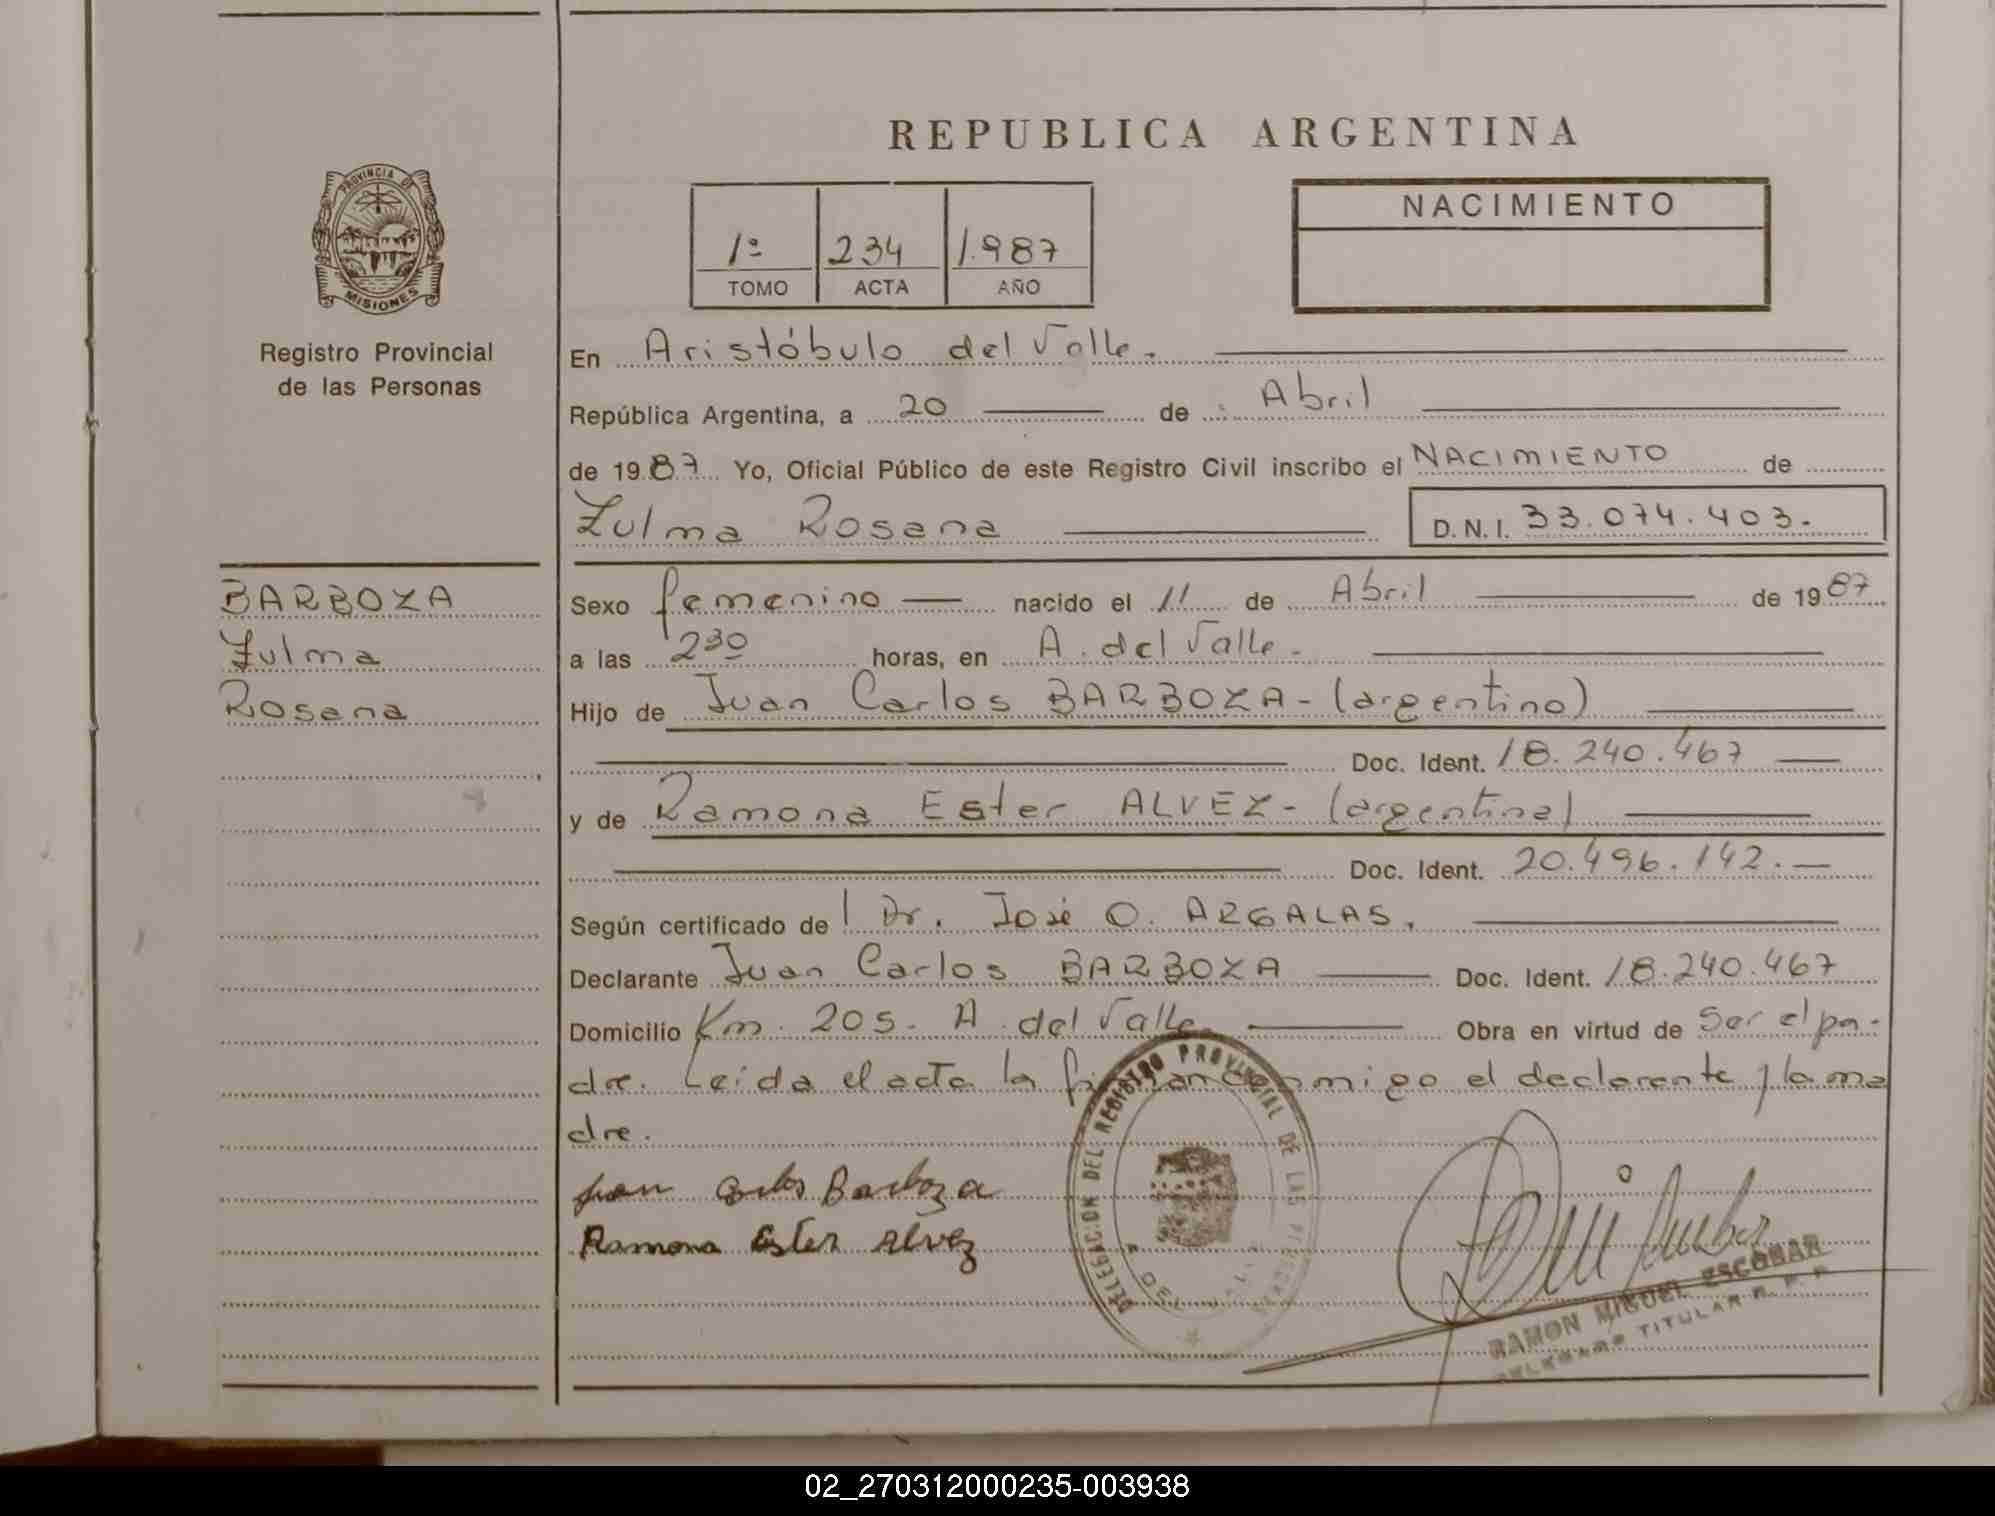 REPUBLICA ARGENTINA
PROVINCIA DE
MISIONES
Registro Provincial
de las Personas
NACIMIENTO
1º 234 1.987
TOMO ACTA AÑO
En Aristóbulo del Valle.
República Argentina, a 20 de Abril
de 1987 Yo, Oficial Público de este Registro Civil inscribo el NACIMIENTO de
Zulma Rosana D.N.I. 33.074.403.
BARBOZA
Zulma
Rosana
Sexo femenino nacido el 11 de Abril de 1987
a las 2³⁰ horas, en A. del Valle.
Hijo de Juan Carlos BARBOZA - (argentino)
Doc. Ident. 18.240.467
y de Ramona Ester ALVEZ - (argentina)
Doc. Ident. 20.496.142.
Según certificado de Dr. José O. ARGALAS.
Declarante Juan Carlos BARBOZA Doc. Ident. 18.240.467
Domicilio Km. 205. A. del Valle. Obra en virtud de ser el pa-
dre. Leida el acta la firman conmigo el declarante y la ma
dre.
Juan Carlos Barboza
Ramona Ester Alvez
DELEGACION DEL REGISTRO PROVINCIAL DE LAS PERSONAS
A. DEL VALLE
RAMON MIGUEL ESCOBAR
DELEGADO TITULAR R. P. P.
02_270312000235-003938